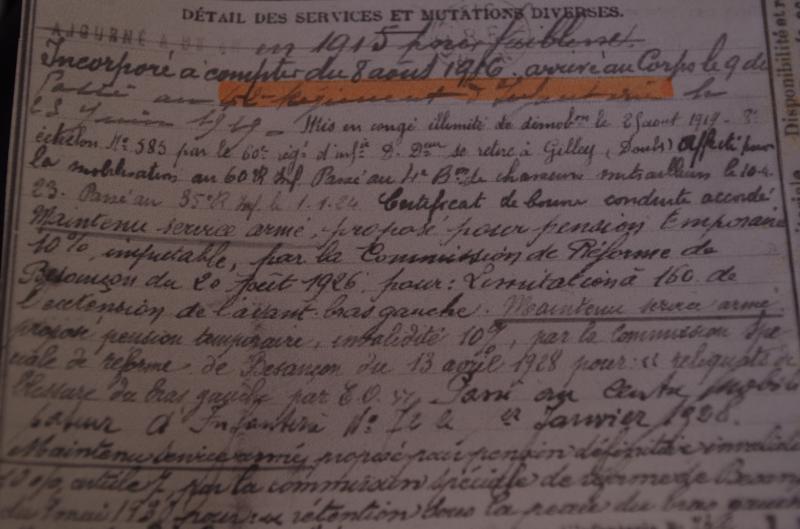 DÉTAIL DES SERVICES ET MUTATIONS DIVERSES.
AJOURNÉ en 1915 pour faiblesse
Incorporé à compter du 8 août 1916. arrivé au Corps le 9 du
Passé au Régiment d'Infanterie le
1919 - Mis en congé illimité de démob^on le 28 août 1919 - 3^e
échelon N° 583 par le 60^e rég^t d'inf^ie D. D^eur se retire à Gilley (Doubs) Affecté pour
la mobilisation au 60^e R Inf. Passé au 4^e B^on de chasseurs mitrailleurs le 10-4-
23. Passé au 35^e R Inf. le 1.1.24. Certificat de bonne conduite accordé
Maintenu service armé, proposé pour pension temporaire
10%, imputable, par la Commission de Réforme de
Besançon du 20 Août 1926 pour: Limitation à 160 de
l'extension de l'avant-bras gauche. Maintenu service armé
proposé pension temporaire, invalidité 10%, par la Commission Spé-
ciale de réforme de Besançon du 13 avril 1928 pour: "reliquats de
blessure du bras gauche par E.O. " Passé au centre mobili-
sateur d'Infanterie N° 72 le 1er Janvier 1928.
Maintenu service armé, proposé pour pension définitive invalidité
10%, article 7, par la commission spéciale de réforme de Besançon
du mai pour: "rétention sous la peau du bras gauche